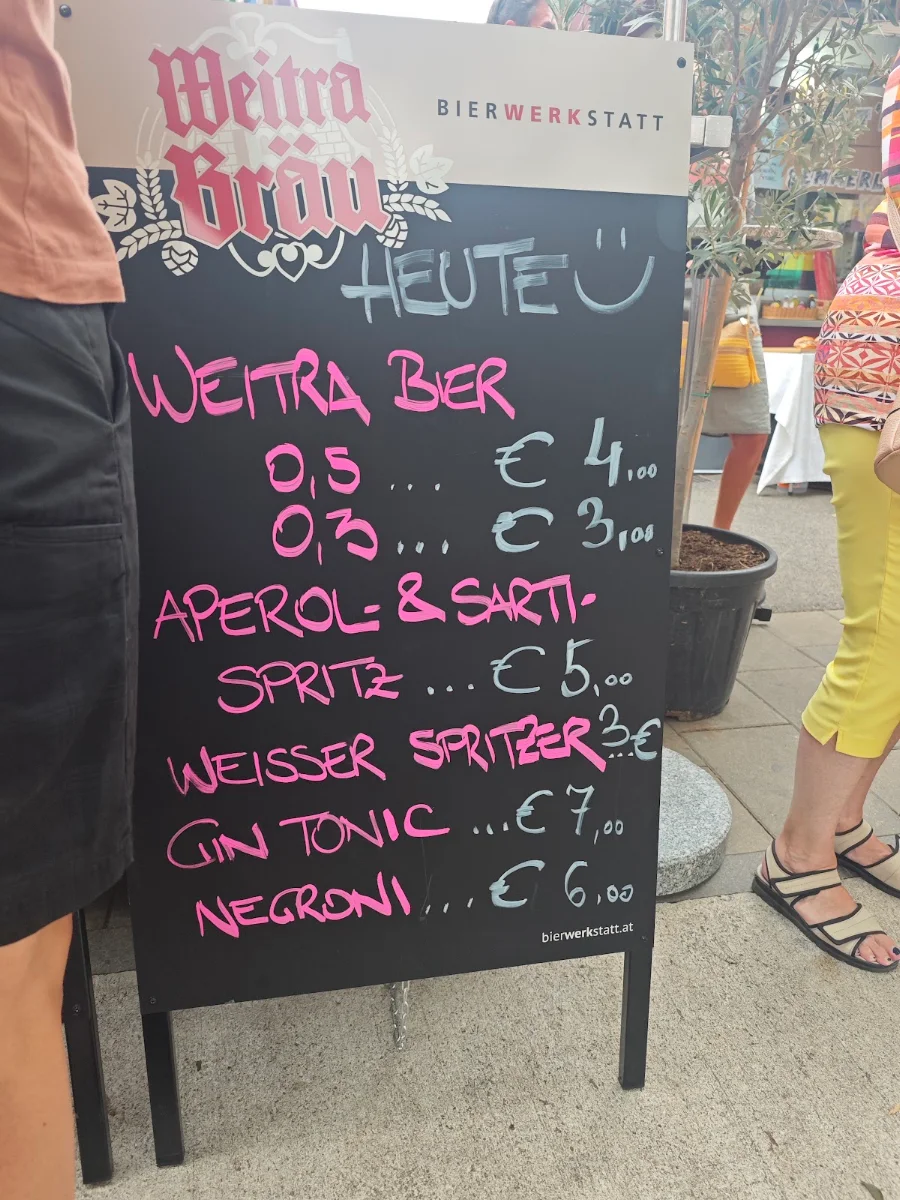 Weitra
Bräu
BIERWERKSTATT
HEUTE Ü
WEITRA BIER
0,5 .... € 4,00
0,3 .... € 3,00
APEROL- & SARTI-
SPRITZ ... € 5,00
WEISSER SPRITZER 3...€
GIN TONIC ... € 7,00
NEGRONI .... € 6,00
bierwerkstatt.at